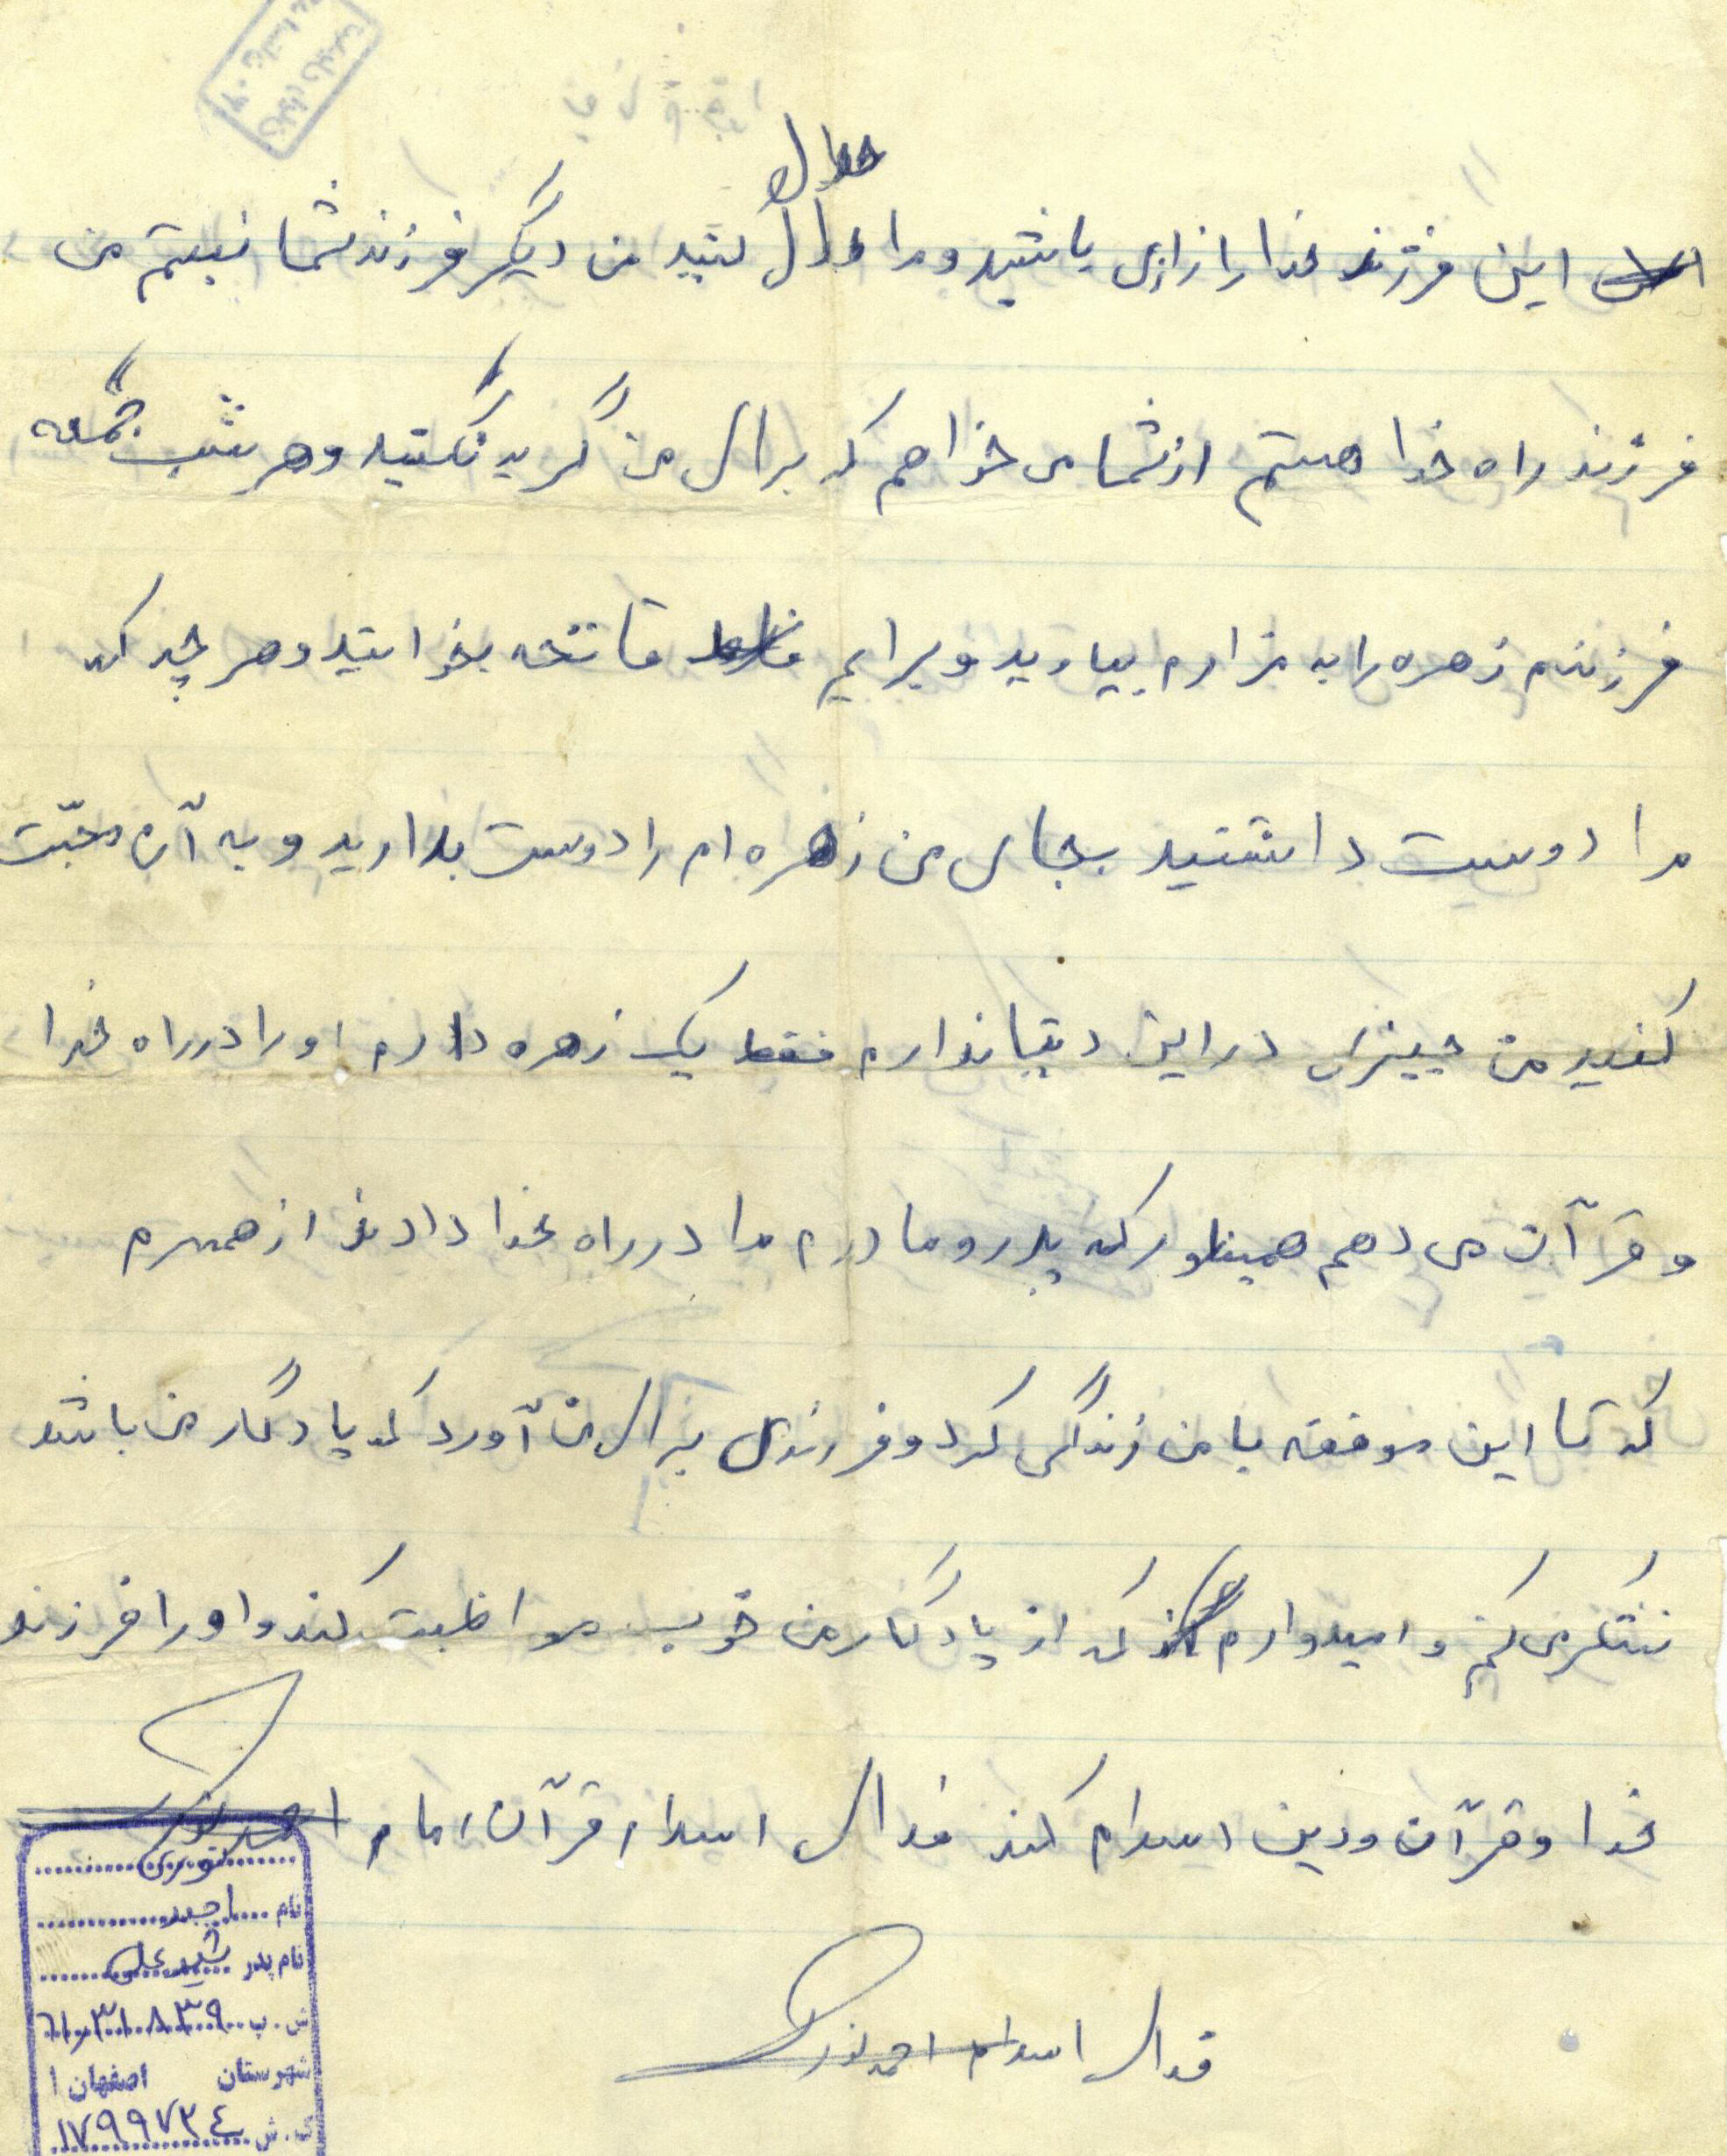 حلال
این فرزند خدا را از راضی باشید و مرا حلال کنید من دیگر فرزند شما نیستم من
فرزند راه خدا هستم از شما می خواهم که برای من گریه نکنید و هر شب جمعه
فرزندم زهره را به مزارم بیاورید و برایم فاتحه بخوانید و هر چه که
مرا دوست داشتید بجای من زهره ام را دوست بدارید و به آن محبّت
کنید من چیزی در این دنیا ندارم فقط یک زهره دارم او را در راه خدا
و قرآن می دهم همینطور که پدر و مادرم مرا در راه خدا دادند از همسرم
که تا این موقعه با من زندگی کرد و فرزندی برای من آورد که یادگار من باشد
تشکر می کنم و امیدوارم که از یادگار من خوب مواظبت کند و او را فرزند
خدا و قرآن و دین اسلام کند فدای اسلام قرآن امام احمد نوری
نوری
نام احمد
نام پدر شیرعلی
ش. پ ٦١٫٣١٨٣٩
شهرستان اصفهان ١
ک. ش ١٧٩٩٧٢٤
فدای اسلام احمد نوری